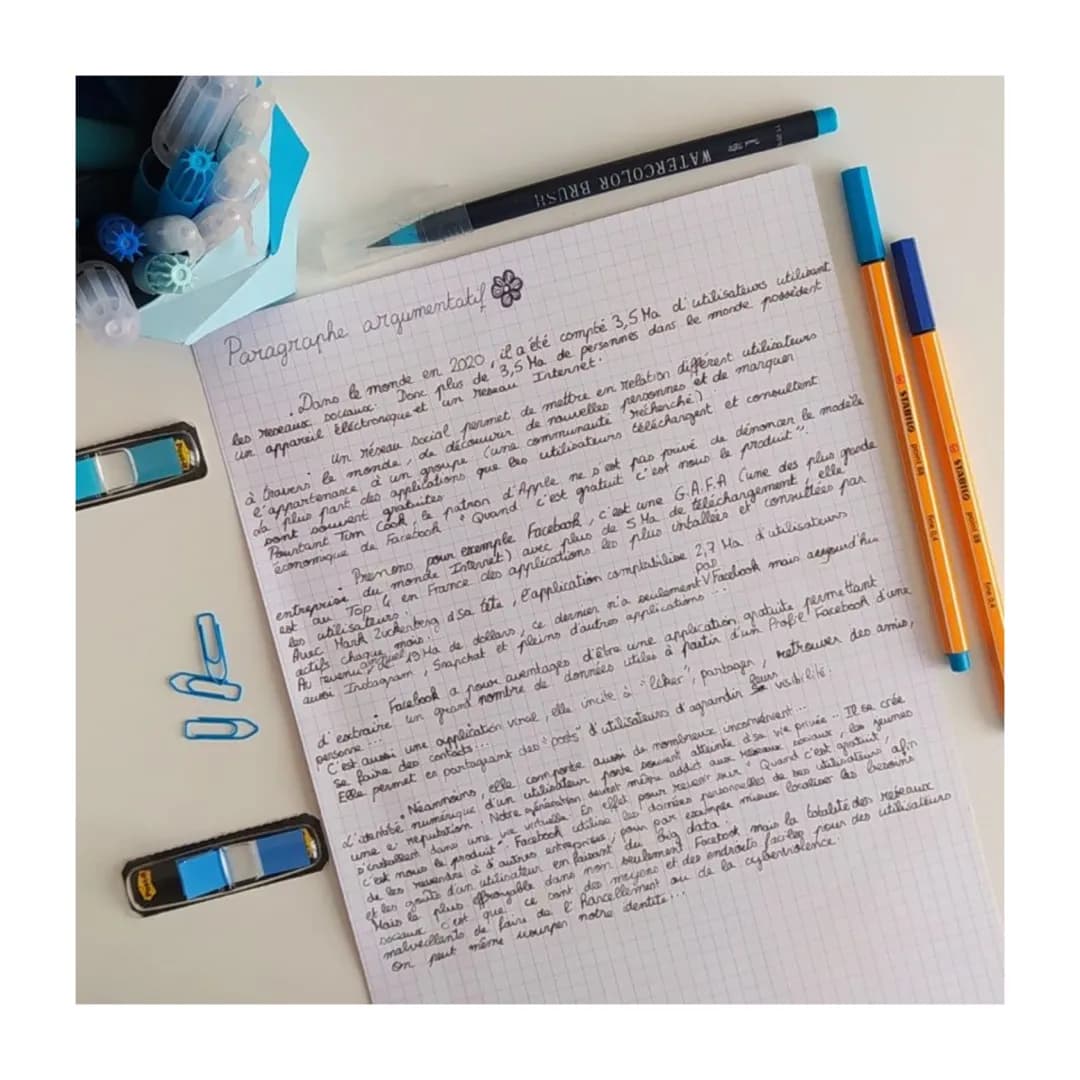 WATERCOLOR BRUSH
Paragraphe argumentatif
. Dans le monde en 2020, il a été compté 3,5 Ma d'utilisateurs utilisant
les reseaux sociaux. Donc plus de 3,5 Ma de personnes dans le monde possèdent
un appareil éléctronique et un reseau Internet.
. Un réseau social permet de mettre en relation différent utilisateurs
à travers le monde, de découvrir de nouvelles personnes et de marquer
l'appartenance à un groupe (une communauté recherché)
La plus part des applications que les utilisateurs téléchargent et consultent
sont souvent gratuites.
Pourtant Tim Cook le patron d'Apple ne s'est pas privé de dénoncer le modèle
économique de Facebook "Quand c'est gratuit c'est nous le produit".
. Prenons pour exemple Facebook, c'est une G.A.F.A (une des plus grande
entreprise du monde Internet) avec plus de 5 Ma de téléchargement, elle
est au Top 4 en France des applications les plus installées et consultées par
les utilisateurs.
Avec Mark Zuckenberg à sa tête, l'application comptabilise 2,7 Ma d'utilisateurs
actifs chaque mois.
Au revenu annuel de 19 Ma de dollars, ce dernier n'a seulement pas Facebook mais aujourd'hui
aussi Instagram, Snapchat et pleins d'autres applications...
. Facebook a pour aventages d'être une application gratuite permettant
d'extraire un grand nombre de données utiles à partir d'un Profil Facebook d'une
personne...
C'est aussi une application viral, elle incite à "liker", partager, retrouver des amis,
se faire des contacts...
Elle permet en partageant des "posts" d'utilisateurs d'agrandir leurs visibilité.
. Néanmoins, elle comporte aussi de nombreux inconvénient...
L'identité numérique d'un utilisateur porte souvent atteinte d'sa vie privée. Il se crée
une e reputation. Notre génération devient même addict aux réseaux sociaux, les jeunes
s'installent dans une vie virtuelle. En effet pour revenir sur "Quand c'est gratuit,
c'est nous le produit" Facebook utilise les données personnelles de ses utilisateurs afin
de les revendre à d'autres entreprises, pour par exemple mieux localiser les besoins
et les goûts d'un utilisateur en faisant du Big data.
Mais le plus effroyable dans non seulement Facebook mais la totalité des reseaux
sociaux c'est que ce sont des moyens et des endroits faciles pour des utilisateurs
malveillants de faire de l'Harcellement ou de la cyberviolence.
On peut même usurper notre identité...
STABILO point 88 fine 0,4
STABILO point 88 fine 0,4